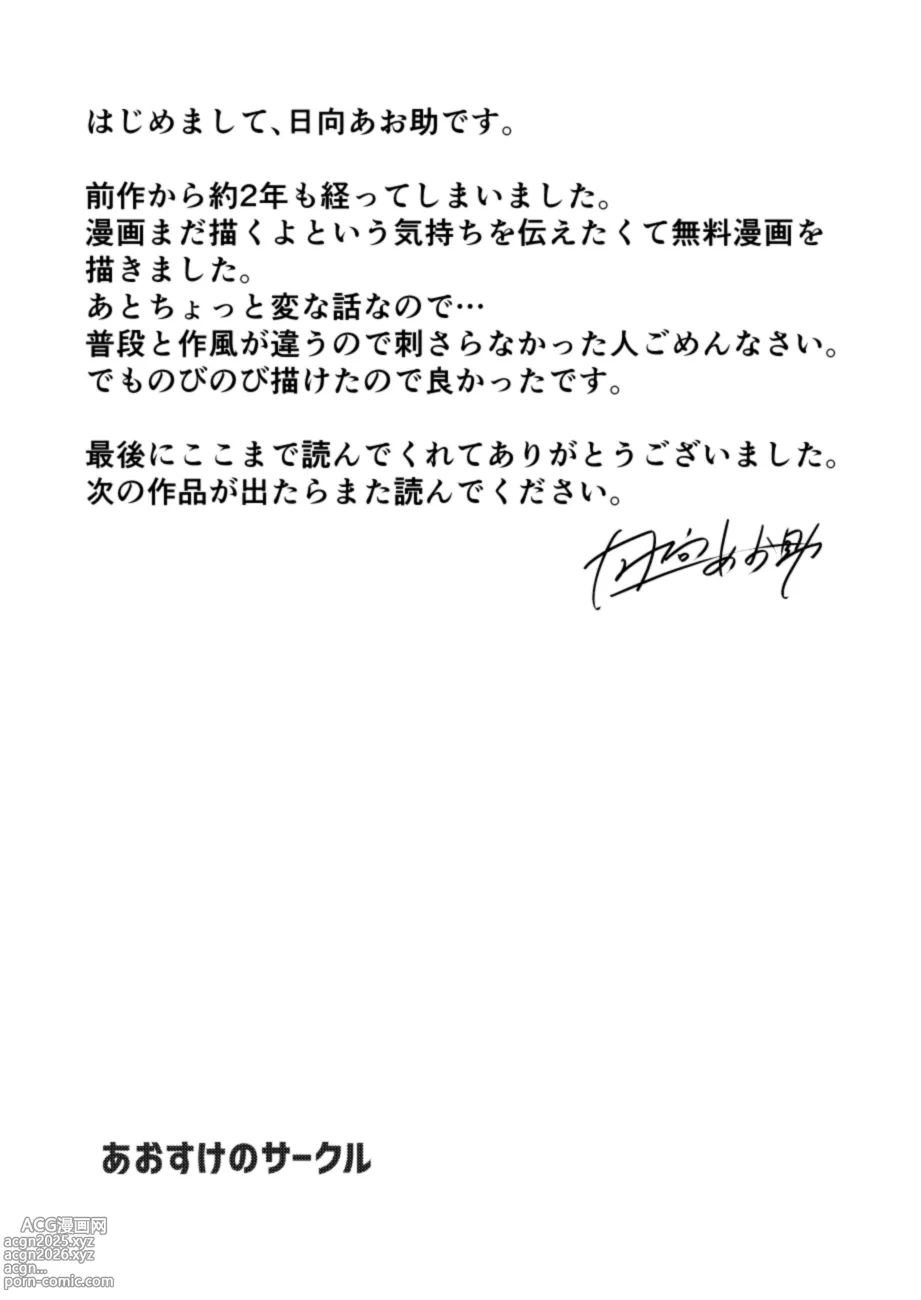 はじめまして、日向あお助です。
前作から約2年も経ってしまいました。
漫画まだ描くよという気持ちを伝えたくて無料漫画を
描きました。
あとちょっと変な話なので…
普段と作風が違うので刺さらなかった人ごめんなさい。
でものびのび描けたので良かったです。
最後にここまで読んでくれてありがとうございました。
次の作品が出たらまた読んでください。
日向あお助
あおすけのサークル
ACG漫画网
acgn2025.xyz
acgn2026.xyz
acgn...
porn-comic.com/